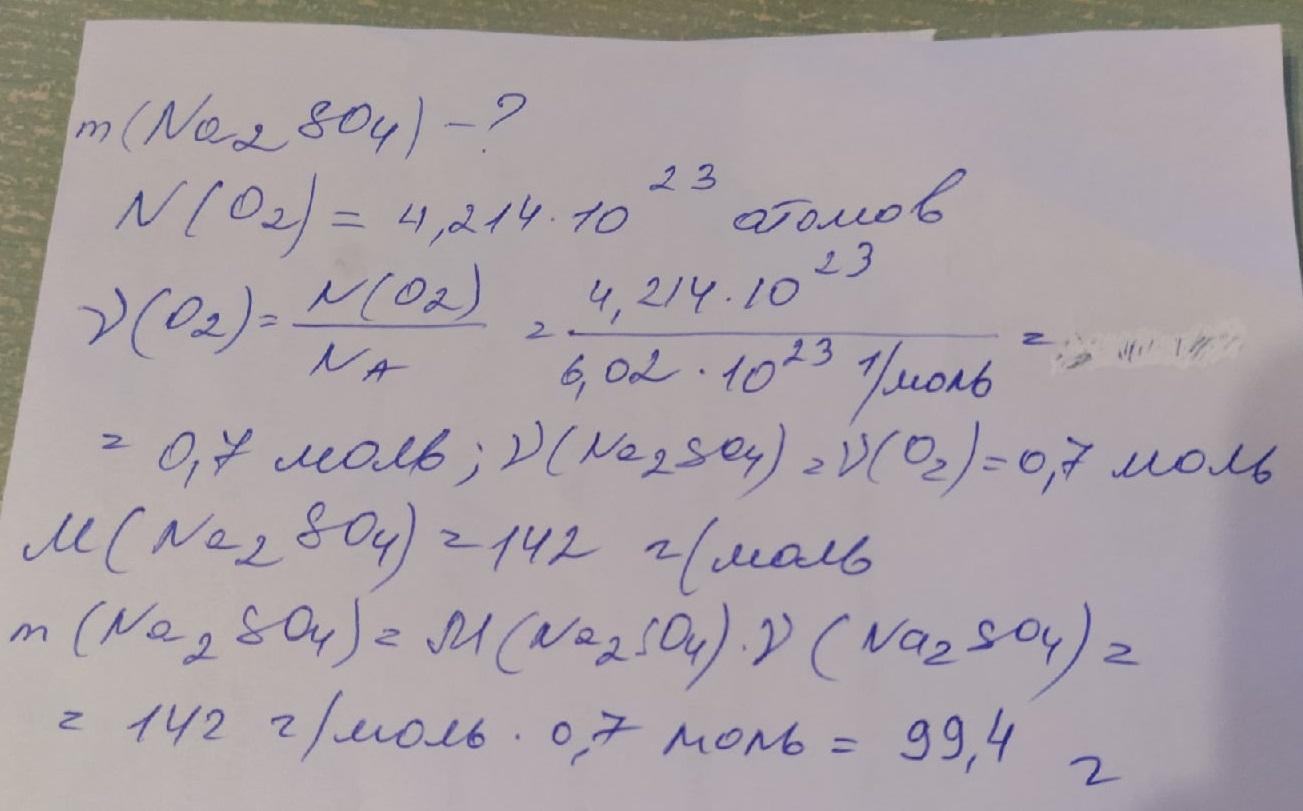 m(Na2SO4) - ?
N(O2) = 4,214 · 10^23 атомов
ν(O2) = N(O2) / NA = 4,214 · 10^23 / 6,02 · 10^23 1/моль =
= 0,7 моль; ν(Na2SO4) = ν(O2) = 0,7 моль
M(Na2SO4) = 142 г/моль
m(Na2SO4) = M(Na2SO4) · ν(Na2SO4) =
= 142 г/моль · 0,7 моль = 99,4 г